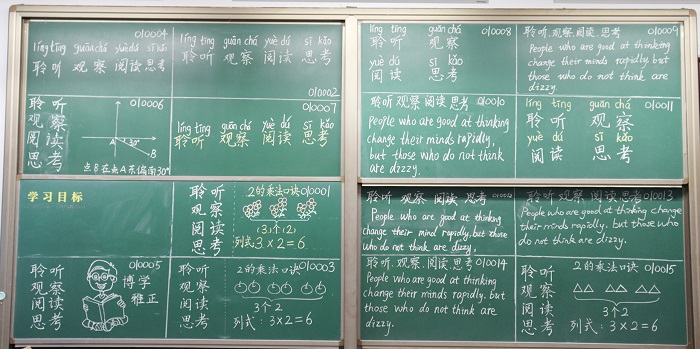 010004
líng tīng guān chá yuè dú sī kǎo
聆 听 观 察 阅 读 思 考
líng tīng guān chá yuè dú sī kǎo
聆 听 观 察 阅 读 思 考
010002
聆 听
观 察
阅 读
思 考
010006
A
30°
B
点B在点A东偏南30°
010007
líng tīng guān chá yuè dú sī kǎo
聆 听 观 察 阅 读 思 考
学习目标
聆 听
观 察
阅 读
思 考
2的乘法口诀 010001
(3个2)
列式 3×2=6
010005
聆 听
观 察
阅 读
思 考
博学
雅正
聆 听
观 察
阅 读
思 考
2的乘法口诀 010003
3个2
列式: 3×2=6
líng tīng guān chá
010008
聆 听 观 察
yuè dú sī kǎo
阅 读 思 考
聆听.观察.阅读.思考 010009
People who are good at thinking
change their minds rapidly, but
those who do not think are
dizzy.
聆听 观察 阅读 思考 010010
people who are good at thinking
change their minds rapidly,
but those who do not think
are dizzy.
líng tīng guān chá 010011
聆 听 观 察
yuè dú sī kǎo
阅 读 思 考
聆听 观察 阅读 思考
People who are good at thinking
change their mind rapidly, but those
who do not think are dizzy.
聆听.观察 阅读 思考 010013
People who are good at thinking change
their minds rapidly, but those who
do not think are dizzy.
聆听.观察.阅读.思考 010014
People who are good at thinking
change their minds rapidly. but
those who do not think are
dizzy.
聆 听
观 察
阅 读
思 考
2的乘法口诀 010015
3个2
列式: 3×2=6